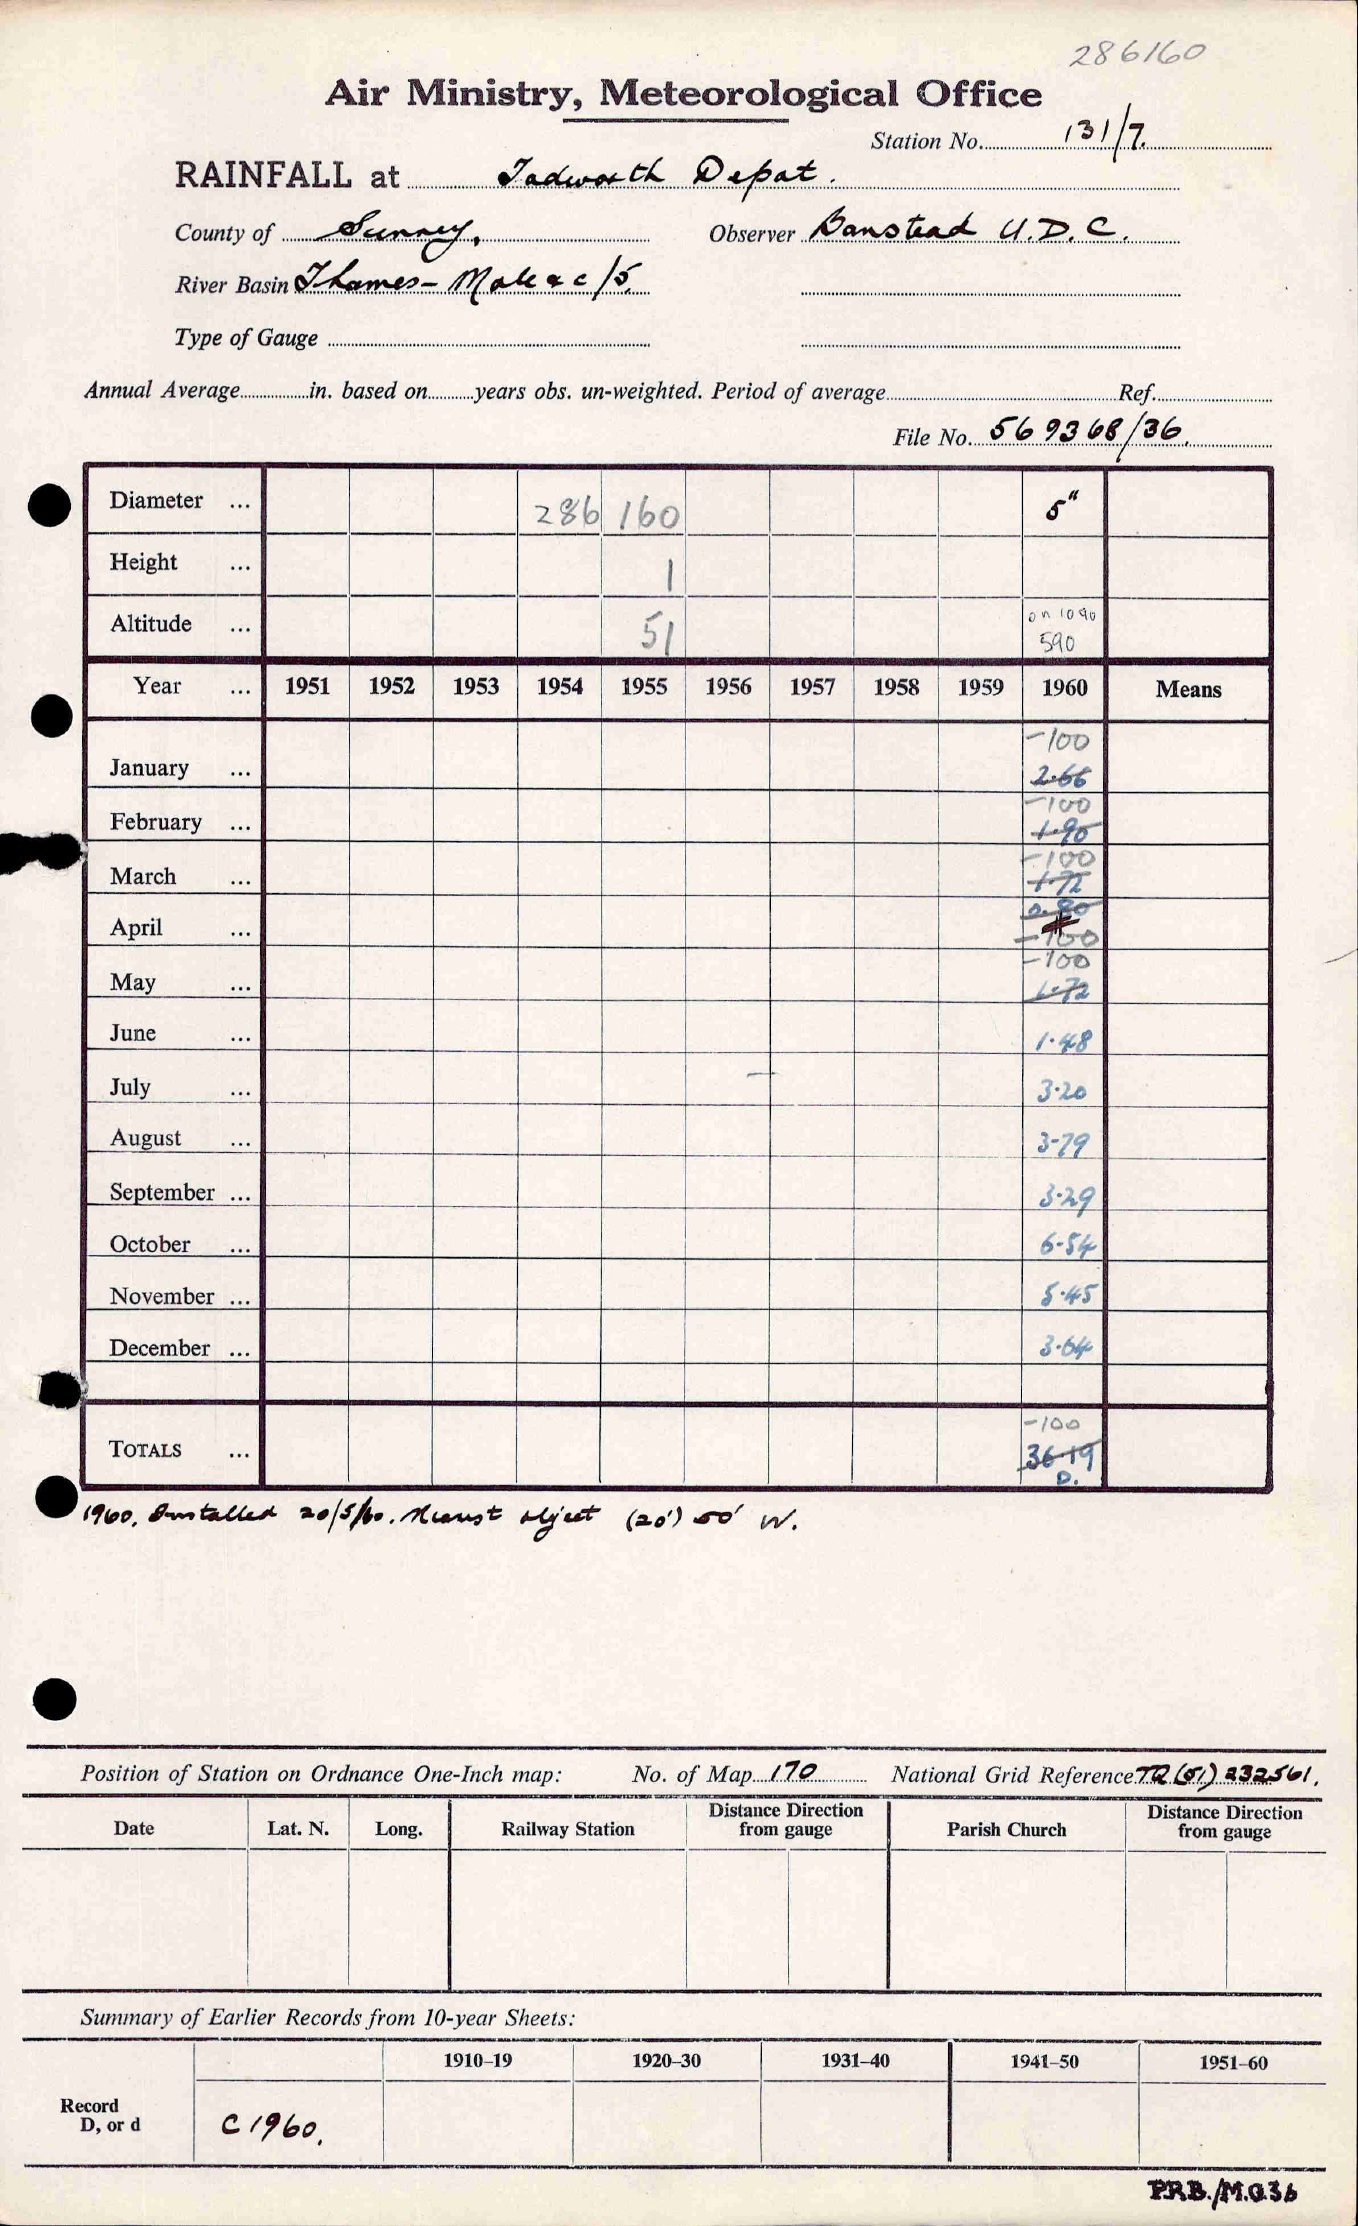 286160
Air Ministry, Meteorological Office
Station No. 131/7.
RAINFALL at Tadworth Depot.
County of Surrey, Observer Banstead U.D.C.
River Basin Thames - Mole & c/5.
Type of Gauge
Annual Average in. based on years obs. un-weighted. Period of average Ref.
File No. 569368/36.
Diameter ... 286 160 5"
Height ... 1
Altitude ... 51 on 1090 590
Year ... 1951 1952 1953 1954 1955 1956 1957 1958 1959 1960 Means
-100
January ... 2.66
-100
February ... 1.90
-100
March ... 1.72
0.80
April ... -100
-100
May ... 1.72
June ... 1.48
July ... 3.20
August ... 3.79
September ... 3.29
October ... 6.54
November ... 5.45
December ... 3.64
-100
TOTALS ... 36.19
D.
1960. Installed 20/5/60. Nearest object (20') 50' W.
Position of Station on Ordnance One-Inch map: No. of Map 170 National Grid Reference TQ (51) 232561.
Date Lat. N. Long. Railway Station Distance Direction from gauge Parish Church Distance Direction from gauge
Summary of Earlier Records from 10-year Sheets:
1910–19 1920–30 1931–40 1941–50 1951–60
Record
D, or d C 1960.
P.R.B./M.O.36